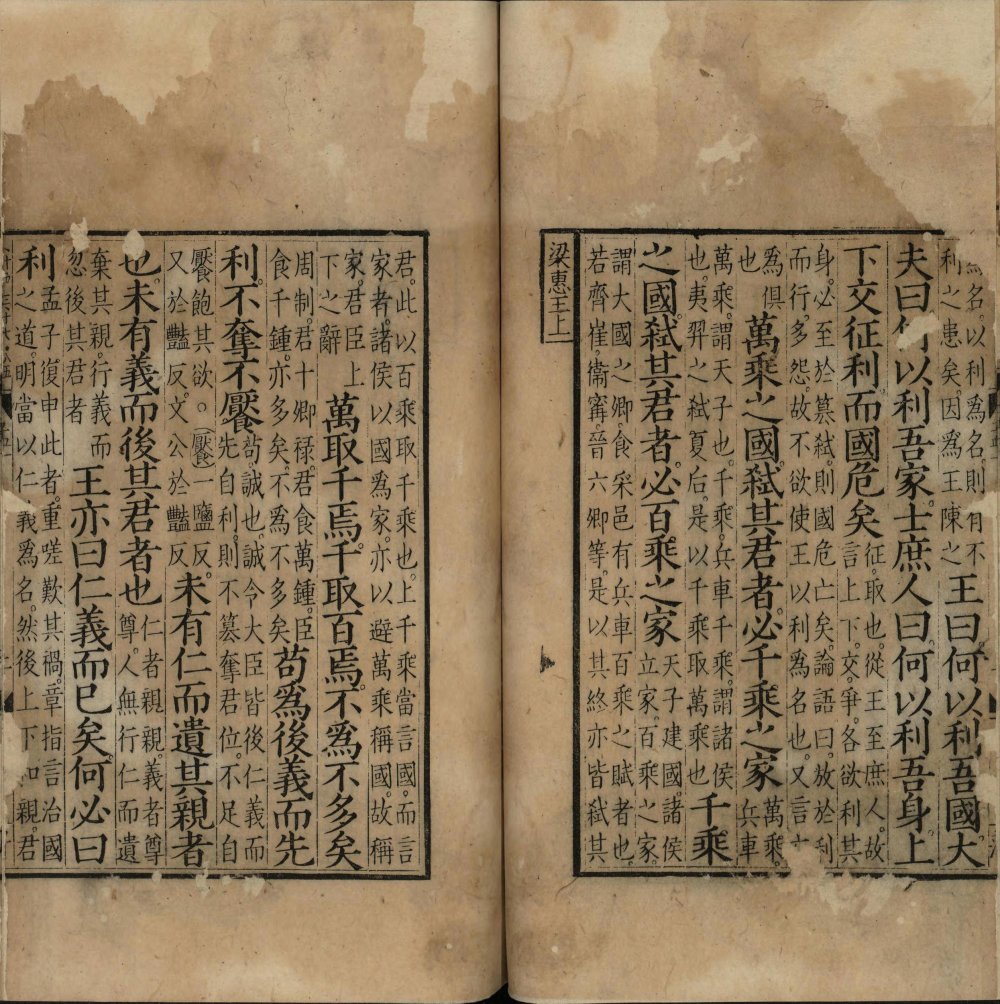 爲名。以利爲名。則有不
利之患矣。因爲王陳之
王曰何以利吾國。大
夫曰何以利吾家。士庶人曰。何以利吾身。上
下交征利。而國危矣
征。取也。從王至庶人。故
言上下交爭。各欲利其
身。必至於篡弒。則國危亡矣。論語曰。放於利
而行。多怨。故不欲使王以利爲名也。又言交
爲俱
也
萬乘之國。弒其君者。必千乘之家
萬乘。
兵車
萬乘。謂天子也。千乘。兵車千乘。謂諸侯
也。夷羿之弒夏后。是以千乘取萬乘也
千乘
之國。弒其君者。必百乘之家
天子建國。諸侯
立家。百乘之家
謂大國之卿。食采邑有兵車百乘之賦者也
若齊崔衞甯晉六卿等。是以其終亦皆弒其
梁惠王上
君。此以百乘取千乘也。上千乘當言國。而言
家者。諸侯以國爲家。亦以避萬乘稱國。故稱
家。君臣上
下之辭
萬取千焉。千取百焉。不爲不多矣
周制。君十卿禄。君食萬鍾。臣
食千鍾。亦多矣。不爲不多矣
苟爲後義而先
利。不奪不饜
苟。誠也。誠令大臣皆後仁義而
先自利。則不篡奪君位。不足自
饜飽其欲。○饜一鹽反。
又於豔反。文公於豔反
未有仁而遺其親者
也。未有義而後其君者也
仁者親親。義者尊
尊。人無行仁而遺
棄其親。行義而
忽後其君者
王亦曰仁義而已矣。何必曰
利
孟子復申此者。重嗟歎其禍。章指言治國
之道。明當以仁義爲名。然後上下和親。君